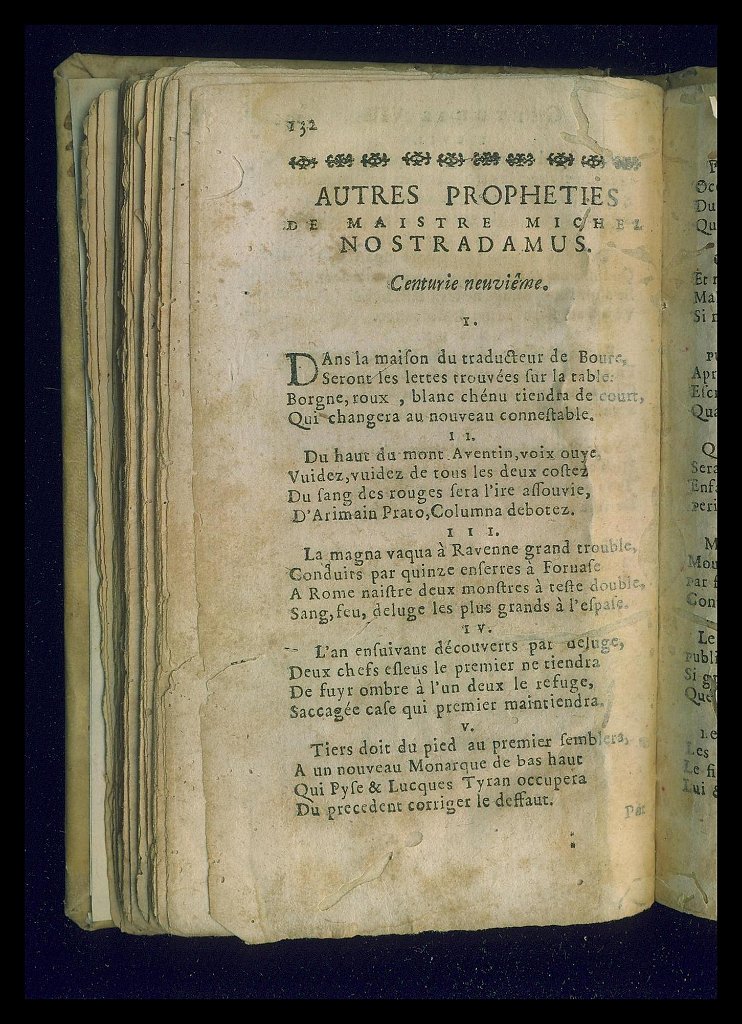 132
AUTRES PROPHETIES
DE MAISTRE MICHEL
NOSTRADAMUS.
Centurie neuviême.
I.
DAns la maiſon du traducteur de Bourc,
Seront les lettes trouvées ſur la table:
Borgne, roux , blanc chénu tiendra de court,
Qui changera au nouveau conneſtable.
I I.
Du haut du mont Aventin, voix ouye,
Vuidez, vuidez de tous les deux coſtez
Du ſang des rouges ſera l'ire aſſouvie,
D'Arimain Prato, Columna debotez.
I I I.
La magna vaqua à Ravenne grand trouble,
Conduits par quinze enſerres à Fornaſe
A Rome naiſtre deux monſtres à teſte double,
Sang, feu, deluge les plus grands à l'eſpaſe.
I V.
L'an enſuivant découverts par deluge,
Deux chefs eſleus le premier ne tiendra
De fuyr ombre à l'un deux le refuge,
Saccagée caſe qui premier maintiendra.
V.
Tiers doit du pied au premier ſemblera,
A un nouveau Monarque de bas haut
Qui Pyſe & Lucques Tyran occupera
Du precedent corriger le deffaut.
Par
Du
Qu
Et
Mal
Si
Apr
Eſcr
Qua
Q
Sera
Enf
peri
M
Mou
par
Con
Le
Publi
Si
Que
Le
Les
Le fi
Lui